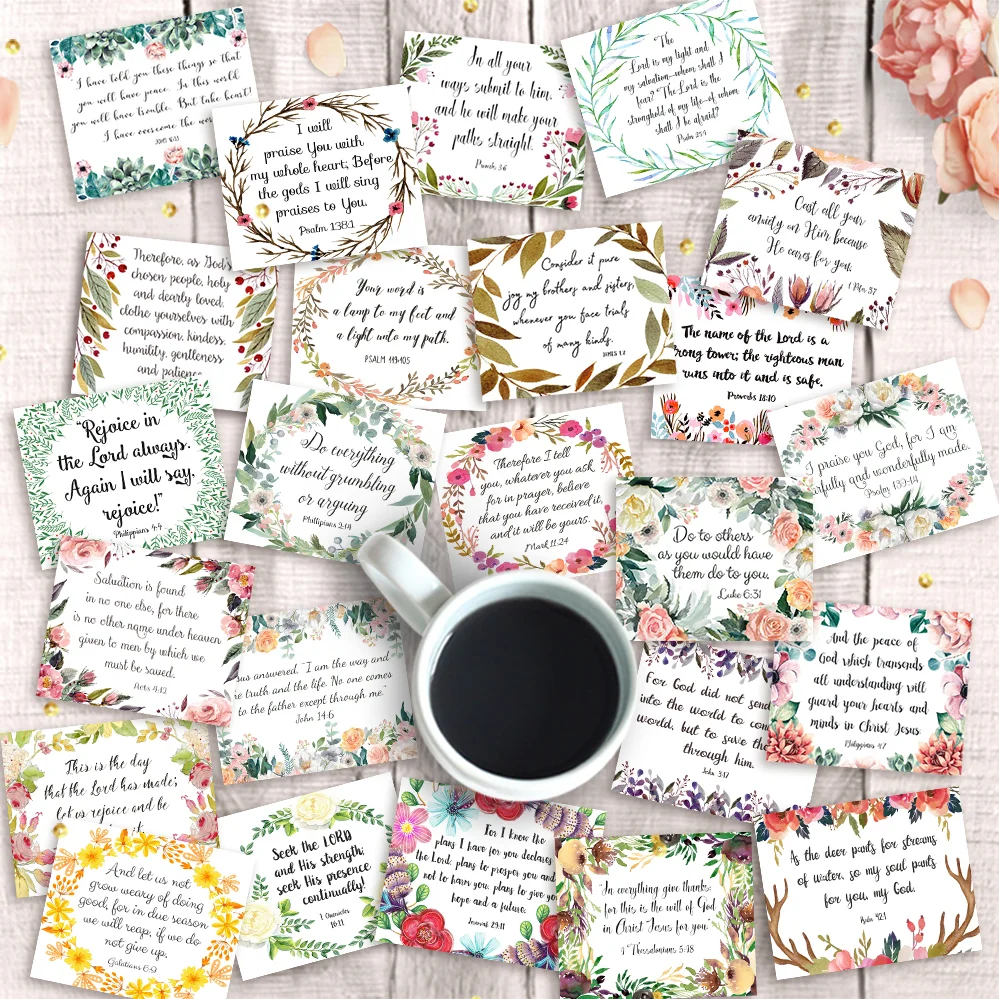 I have told you these things so that
you will have peace. In this world
you will have trouble. But take heart!
I have overcome the
JOHN 16:33
I will
praise You with
my whole heart; Before
the gods I will sing
praises to You.
Psalm 138:1
In all your
ways submit to him,
and he will make your
paths straight.
Proverbs 3:6
The
Lord is my light and
my salvation—whom shall I
fear? "The Lord is the
stronghold of my life—of whom
shall I be afraid?
Psalm 27:1
Cast all your
anxiety on Him because
He cares for you.
Therefore, as God's
chosen people, holy
and dearly loved,
clothe yourselves with
compassion, kindess,
humility, gentleness
and patience
Your word is
a lamp to my feet and
a light unto my path.
PSALM 119:105
Consider it pure
joy my brothers and sisters,
whenever you face trials
of many kinds.
JAMES 1:2
The name of the Lord is a
rong tower; the righteous man
runs into it and is safe.
Proverbs 18:10
"Rejoice in
the Lord always.
Again I will say,
rejoice!"
Phillippians 4:4
Do everything
without grumbling
or arguing
Phillipians 2:14
Therefore I tell
you, whatever you ask
for in prayer, believe
that you have received it,
and it will be yours.
Mark 11:24
I praise you God, for I am
arfully and wonderfully made.
Psalm 139:14
Do to others
as you would have
them do to you.
Luke 6:31
Salvation is found
in no one else, for there
is no other name under heaven
given to men by which we
must be saved.
Acts 4:12
sus answered, "I am the way and
e truth and the life. No one comes
to the father except through me."
John 14:6
For God did not send
into the world to con
world, but to save th
through him.
John 3:17
And the peace of
God which transends
all understanding will
guard your hearts and
minds in Christ Jesus.
Philippians 4:7
This is the day
that the Lord has made;
let us rejoice and be
And let us not
grow weary of doing
good, for in due season
we will reap, if we do
not give up.
Galatians 6:9
Seek the LORD
and His strength;
seek His presence
continually!
1 Chronicles
16:11
For I know the
plans I have for you declares
the Lord, plans to prosper you and
not to harm you, plans to give you
hope and a future.
Jeremiah 29:11
"In everything give thanks:
for this is the will of God
in Christ Jesus for you."
1 Thessalonians 5:18
As the deer pants for streams
of water, so my soul pants
for you, my God.
Psalm 42:1